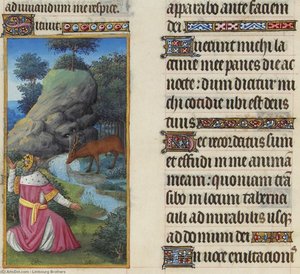 adiuuandum me respice.
Sitiuit
apparabo ante faciem
dei
Fuerunt michi la
crime mee panes die ac
nocte: dum dicitur mi
chi cotidie ubi est deus
tuus
Hec recordatus sum
et effudi in me animā
meam: quoniam trā
sibo in locum taberna
culi admirabilis usqꝫ
ad domum dei
In uoce exultationi
(C) ArtsDot.com / Limbourg Brothers